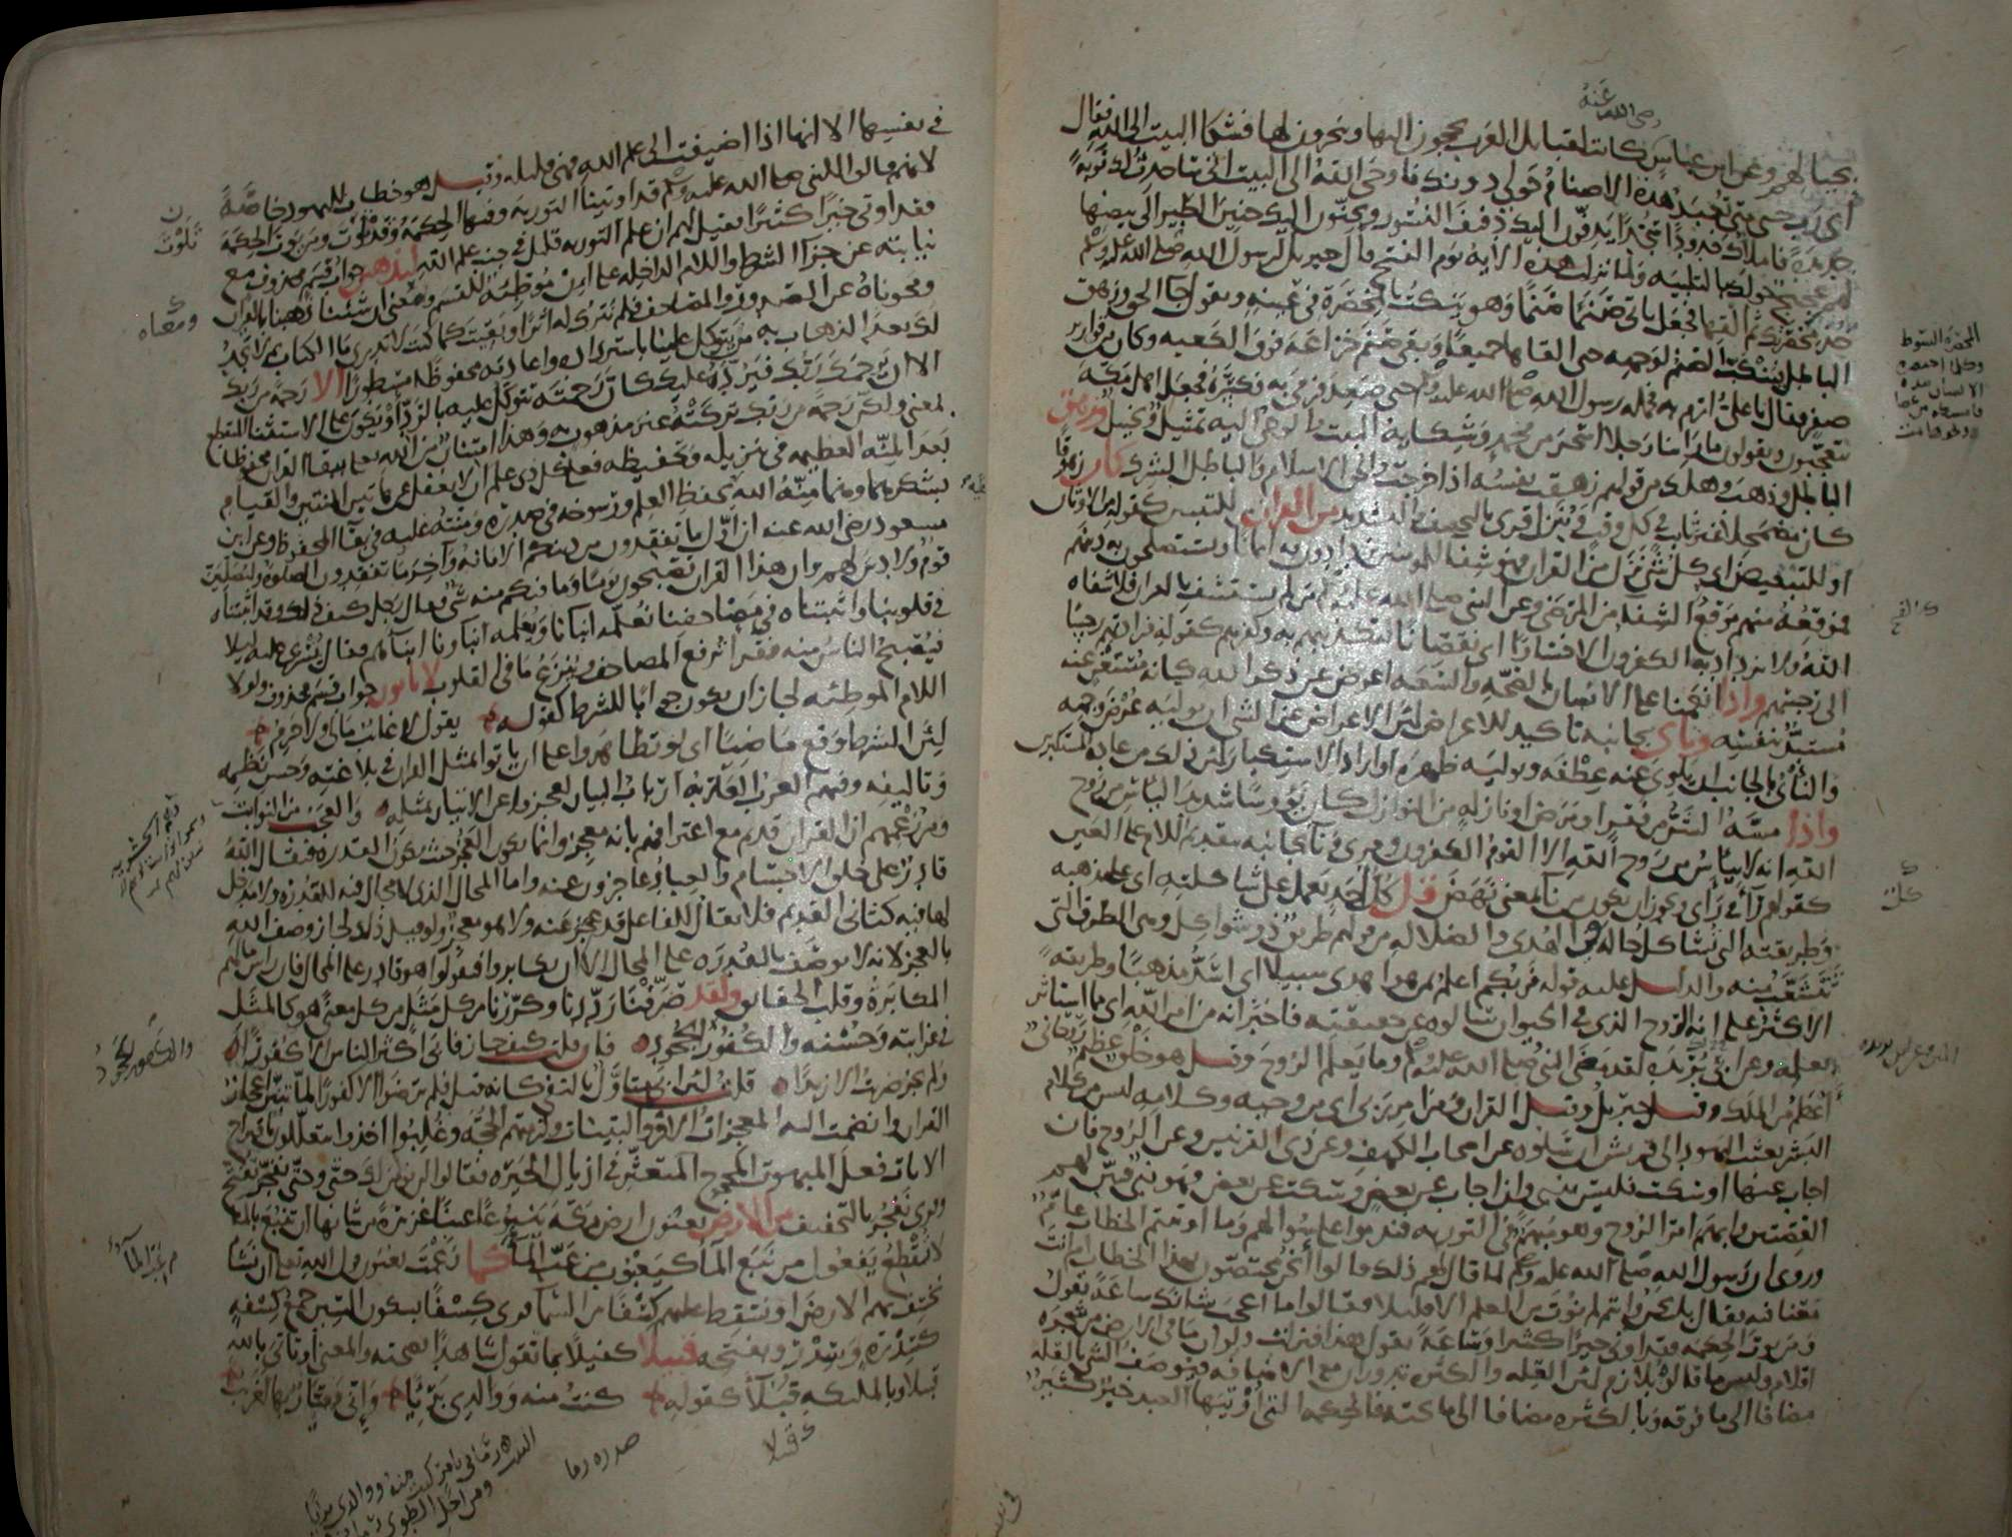 رضى الله عنه
بحيالهم وعن ابن عباس كانت لقبايل العرب يحجون اليها وينحرون لها فشكا البيت الى الله فقال
اى رب حتى متى تعبد هذه الاصنام حولى دونك فاوحى الله الى البيت انى ساحدث لك نوبة
جديدة فاملاك خدودا سجدا يدفون اليك دفيف النسور ويحنون اليك حنين الطير الى بيضها
لهم عجيج حولك بالتلبية ولما نزلت هذه الآية يوم الفتح قال جبريل لرسول الله صلى الله عليه وسلم
خذ مخصرتك ثم القها فجعل ياتى صنما صنما وهو ينكت بالمخصرة فى عينه ويقول جا الحق وزهق
الباطل فينكب الصنم لوجهه حتى القاها جميعا وبقى صنم خزاعة فوق الكعبة وكان من قوارير
صفر فقال يا على ارم به فحمله رسول الله صلى الله عليه وسلم حتى صعد فرمى به فكسره فجعل اهل مكة
يتعجبون ويقولون ما راينا رجلا اسحر من محمد وشكاية البيت والوحى اليه تمثيل وتخييل وزهق
الباطل ذهب وهلك من قولهم زهقت نفسه اذا خرجت والحق الاسلام والباطل الشرك كان زهوقا
كان مضمحلا غير ثابت فى كل وقت وننزل قرى بالتخفيف والتشديد من القران للتبيين كقوله من الاوثان
او للتبعيض اى كل شى نزل من القران فهو شفا للمومنين يزدادون به ايمانا ويستصلحون به دينهم
فموقعه منهم موقع الشفا من المرضى وعن النبى صلى الله عليه وسلم من لم يستشف بالقران فلا شفاه
الله ولا يزداد به الكفرون الا خسارا اى نقصانا لتكذيبهم به وكفرهم كقوله فزادتهم رجسا
الى رجسهم واذا انعمنا على الانسان بالصحة والسعة اعرض عن ذكر الله كانه مستغن عنه
مستبد بنفسه وناى بجانبه تاكيد للاعراض لان الاعراض عن الشى ان يوليه عرض وجهه
والناى بالجانب ان يلوى عنه عطفه ويوليه ظهره او اراد الاستكبار لان ذلك من عادة المستكبرين
واذا مسه الشر من فقر او مرض او نازلة من النوازل كان يؤوسا شديد الياس من روح
الله انه لا يياس من روح الله الا القوم الكفرون وقرى وناء بجانبه بتقديم اللام على العين
كقولهم راء فى راى ويجوز ان يكون من ناء بمعنى نهض قل كل احد يعمل على شاكلته اى على مذهبه
وطريقته التى تشاكل حاله فى الهدى والضلالة من قولهم طريق ذو شواكل وهى الطرق التى
تتشعب منه والدليل عليه قوله فربكم اعلم بمن هو اهدى سبيلا اى اسد مذهبا وطريقة
الاكثر على انه الروح الذى فى الحيوان سالوه عن حقيقته فاخبر انه من امر الله اى مما استاثر
بعلمه وعن ابى بريدة لقد مضى النبى صلى الله عليه وسلم وما يعلم الروح وقيل هو خلق عظيم روحانى
اعظم من الملك وقيل جبريل وقيل القران ومن امر ربى اى من وحيه وكلامه ليس من كلام
البشر بعثت اليهود الى قريش ان سلوه عن اصحاب الكهف وعن ذى القرنين وعن الروح فان
اجاب عنها او سكت فليس بنبى وان اجاب عن بعض وسكت عن بعض فهو نبى فبين لهم
القصتين وابهم امر الروح وهو مبهم فى التورية فندموا على سؤالهم وما اوتيتم الخطاب عام
وروى ان رسول الله صلى الله عليه وسلم لما قال لهم ذلك قالوا أنحن مختصون بهذا الخطاب ام انت
معنا فيه فقال بل نحن وانتم لم نوت من العلم الا قليلا فقالوا ما اعجب شانك ساعة تقول
ومن يوت الحكمة فقد اوتى خيرا كثيرا وساعة تقول هذا فنزلت ولو ان ما فى الارض من شجرة
اقلام وليس ما قالوه بلازم لان القلة والكثرة تدوران مع الاضافة فيوصف الشى بالقلة
مضافا الى ما فوقه وبالكثرة مضافا الى ما تحته فالحكمة التى أوتيها العبد خير كثير
المخصرة السوط
وكل ما اختصره
الانسان بيده
فامسكه من عصا
ونحوها
كل
فى نفسها الا انها اذا اضيفت الى علم الله فهى قليلة وقيل هو خطاب لليهود خاصة
لانهم قالوا للنبى صلى الله عليه وسلم قد اوتينا التورية وفيها الحكمة وقد تلوت ومن يوت الحكمة
فقد اوتى خيرا كثيرا فقيل لهم ان علم التورية قليل فى جنب علم الله لنذهبن جواب قسم محذوف مع
نيابته عن جزا الشرط واللام الداخلة على ان موطئة للقسم والمعنى ان شئنا ذهبنا بالقران
ومحوناه عن الصدور والمصاحف فلم نترك له اثرا وبقيت كما كنت لا تدرى ما الكتاب ثم لا تجد
لك بعد الذهاب به من يتوكل علينا باسترداده واعادته محفوظا مسطورا الا رحمة من ربك
الا ان يرحمك ربك فيرده عليك كان رحمته تتوكل عليه بالرد او يكون على الاستثنا المنقطع
بمعنى ولكن رحمة من ربك تركته غير مذهوب به وهذا امتنان من الله تعالى ببقا القران محفوظا
بعد المنة العظيمة فى تنزيله وتحفيظه فعلى كل ذى علم ان لا يغفل عن هاتين المنتين والقيام
بشكرهما وهما منة الله عليه بحفظ العلم ورسوخه فى صدره ومنته عليه فى بقا المحفوظ وعن ابن
مسعود رضى الله عنه ان اول ما تفقدون من دينكم الامانة وآخر ما تفقدون الصلوة وليصلين
قوم ولا دين لهم وان هذا القران تصبحون يوما وما فيكم منه شى فقال رجل كيف ذلك وقد اثبتناه
فى قلوبنا واثبتناه فى مصاحفنا نعلمه ابنانا ويعلمه ابناونا ابناهم فقال يسرى عليه ليلا
فيصبح الناس منه فقرا ترفع المصاحف وينزع ما فى القلوب لا ياتون جواب قسم محذوف ولولا
اللام الموطئة لجاز ان يكون جوابا للشرط كقوله يقول لا غائب مالى ولا حرم
لان الشرط وقع ماضيا اى لو تظاهروا على ان ياتوا بمثل القران فى بلاغته وحسن نظمه
وتاليفه وفيهم العرب العاربة ارباب البيان لعجزوا عن الاتيان بمثله والعجب من النوابت
ومن زعمهم ان القران قديم مع اعترافهم بانه معجز وانما يكون العجز حيث يكون القدرة فيقال الله
قادر على خلق الاجسام والعباد عاجزون عنه واما المحال الذى لا مجال فيه للقدرة ولا مدخل
لها فيه كثانى القديم فلا يقال للفاعل قد عجز عنه ولا هو معجز ولو قيل ذلك لجاز وصف الله
بالعجز لانه لا يوصف بالقدرة على المحال الا ان يكابروا فيقولوا هو قادر على المحال فان راس مالهم
المكابرة وقلب الحقايق ولقد صرفنا رددنا وكررنا من كل مثل من كل معنى هو كالمثل
فى غرابته وحسنه والكفور الجحود فان قلت كيف جاز فابى اكثر الناس الا كفورا
ولم يجز ضربت الا زيدا قلت لان ابى متاول بالنفى كانه قيل فلم يرضوا الا كفورا لما تبين اعجاز
القران وانضمت اليه المعجزات الاخر والبينات ولزمتهم الحجة وغلبوا اخذوا يتعللون باقتراح
الايات فعل المبهوت المحجوج المتعثر فى اذيال الحيرة فقالوا لن نؤمن لك حتى وحتى تفجر تفتح
وقرى تفجر بالتخفيف من الارض يعنون ارض مكة ينبوعا عينا غزيرة من شانها ان تنبع بالما
لا تنقطع يفعول من نبع الما كيعبوب من عب الما كما زعمت يعنون قول الله تعالى ان نشا
نخسف بهم الارض او نسقط عليهم كسفا من السما قرى كسفا بسكون السين جمع كسفة
كسدرة وسدر وبفتحه قبيلا كفيلا بما تقول شاهدا بصحته والمعنى او تاتى بالله
قبيلا وبالملئكة قبيلا كقوله كنت منه ووالدى بريا وانى وقيار بها لغريب
تلوت
ومعناه
والكفور الجحود
من عب الما
صدره رما
قبيلا